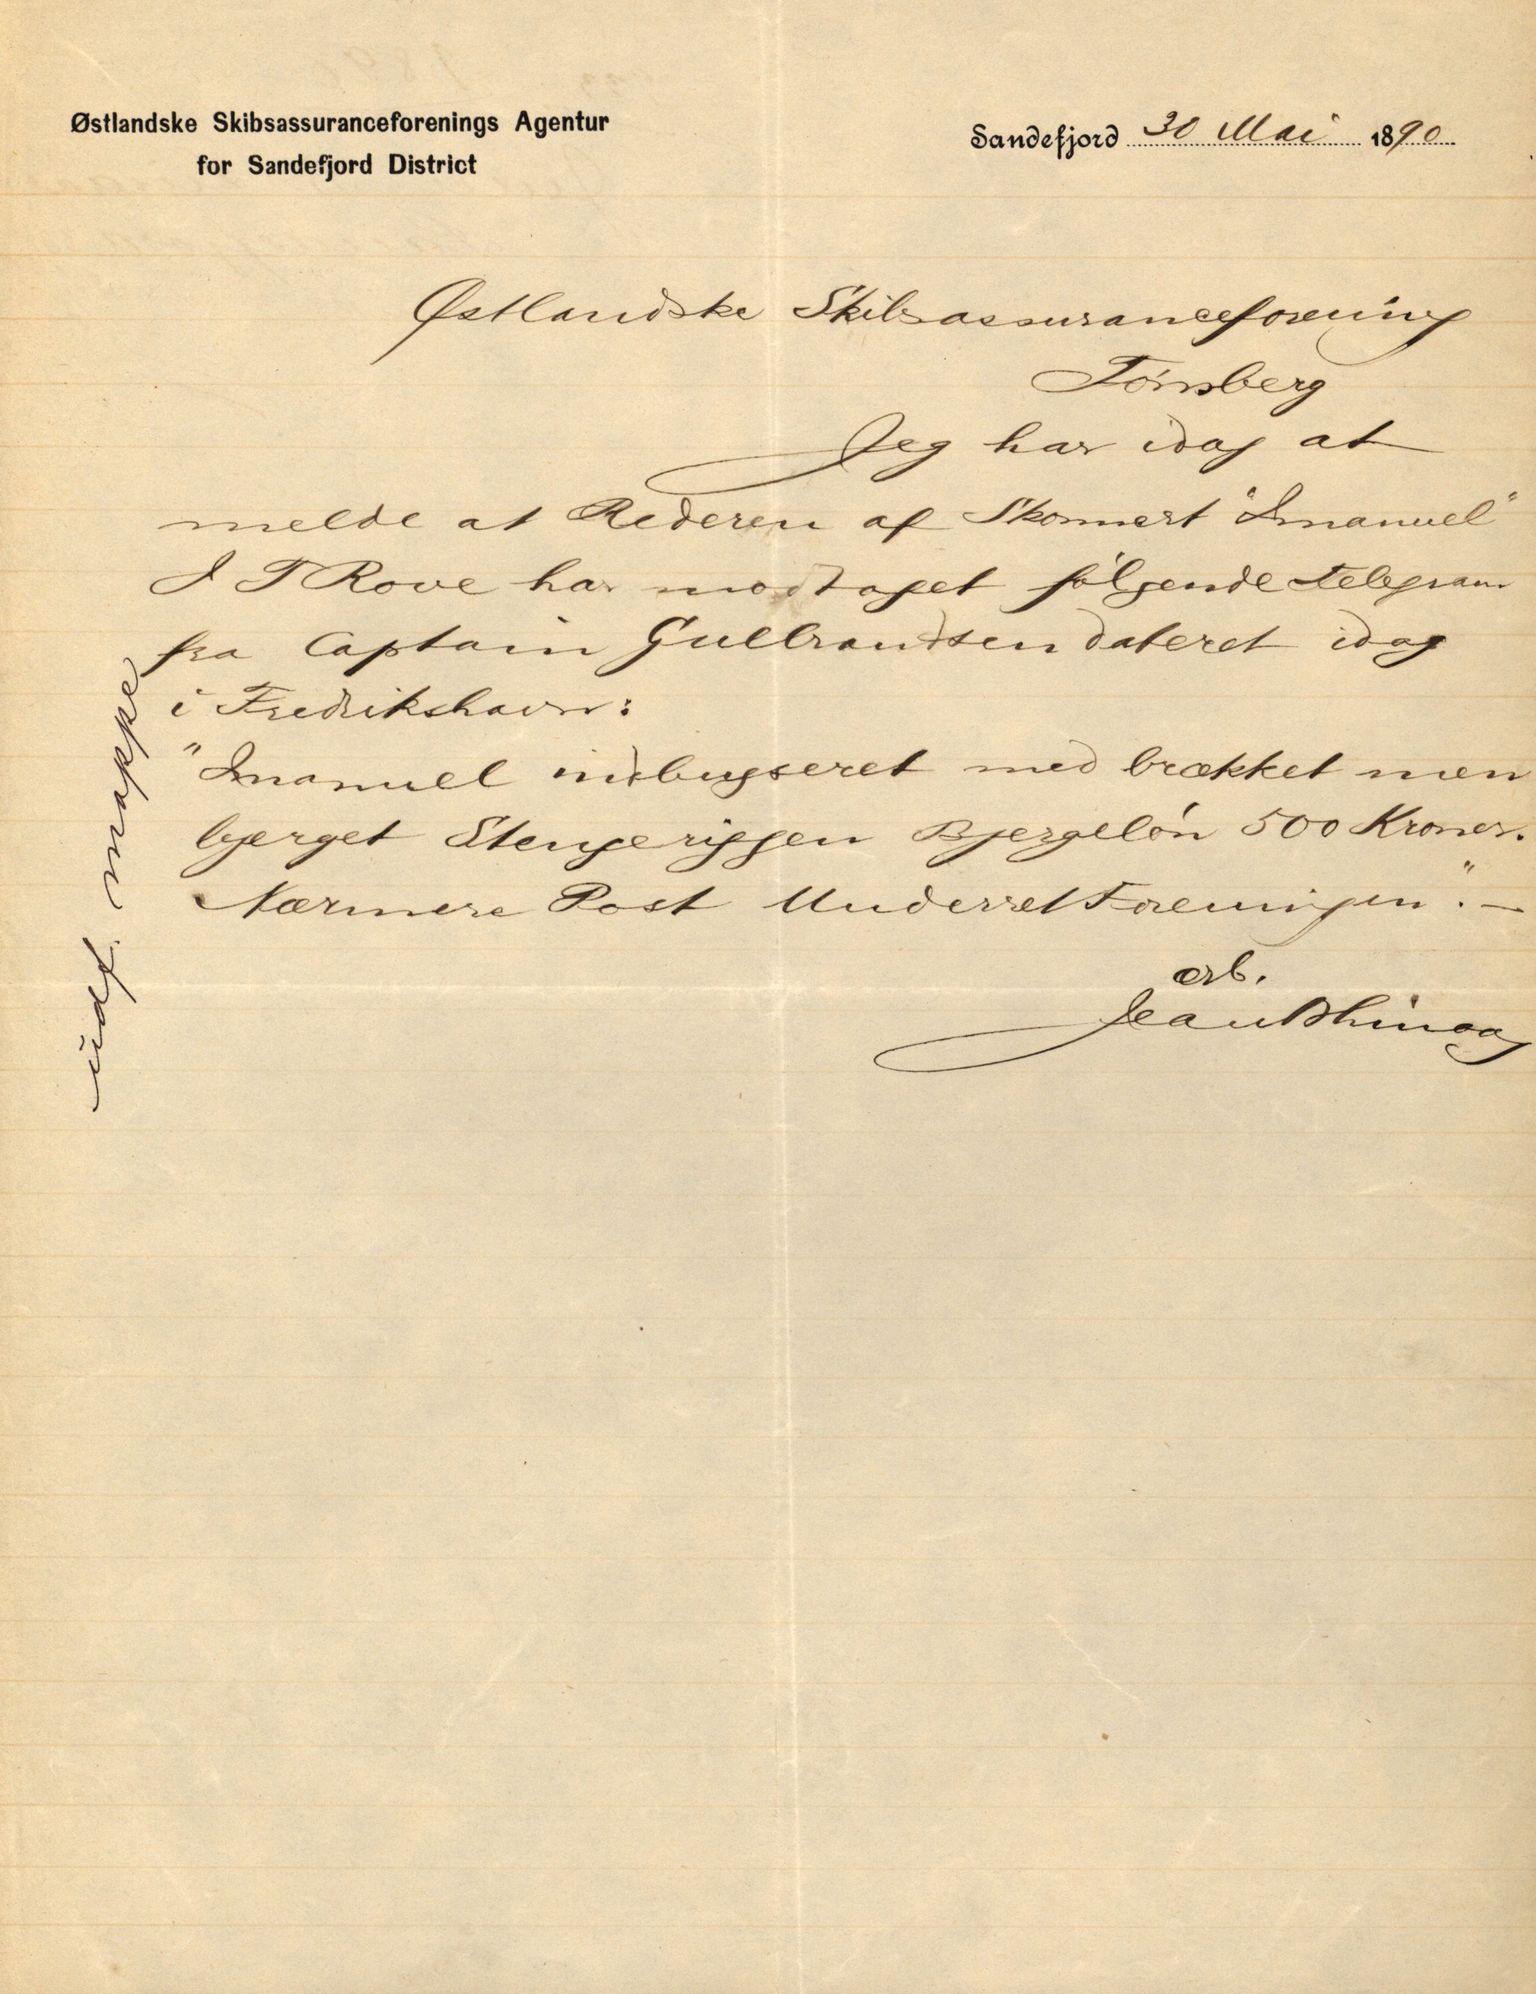 Østlandske Skibsassuranceforenings Agentur
for Sandefjord District
Sandefjord 30 Mai 1890
Østlandske Skibsassuranceforening
Tönsberg
Jeg har idag at
melde at Rederen af Skonnert "Imanuel"
J T Rove har modtaget følgende telegram
fra Captain Gulbrandsen dateret idag
i Fredrikshavn:
"Imanuel indbugseret med brækket men
bjerget Stengeriggen Bjergelön 500 Kroner.
Nærmere Post Underret Foreningen". –
ærb.
Jean
indf. mappe